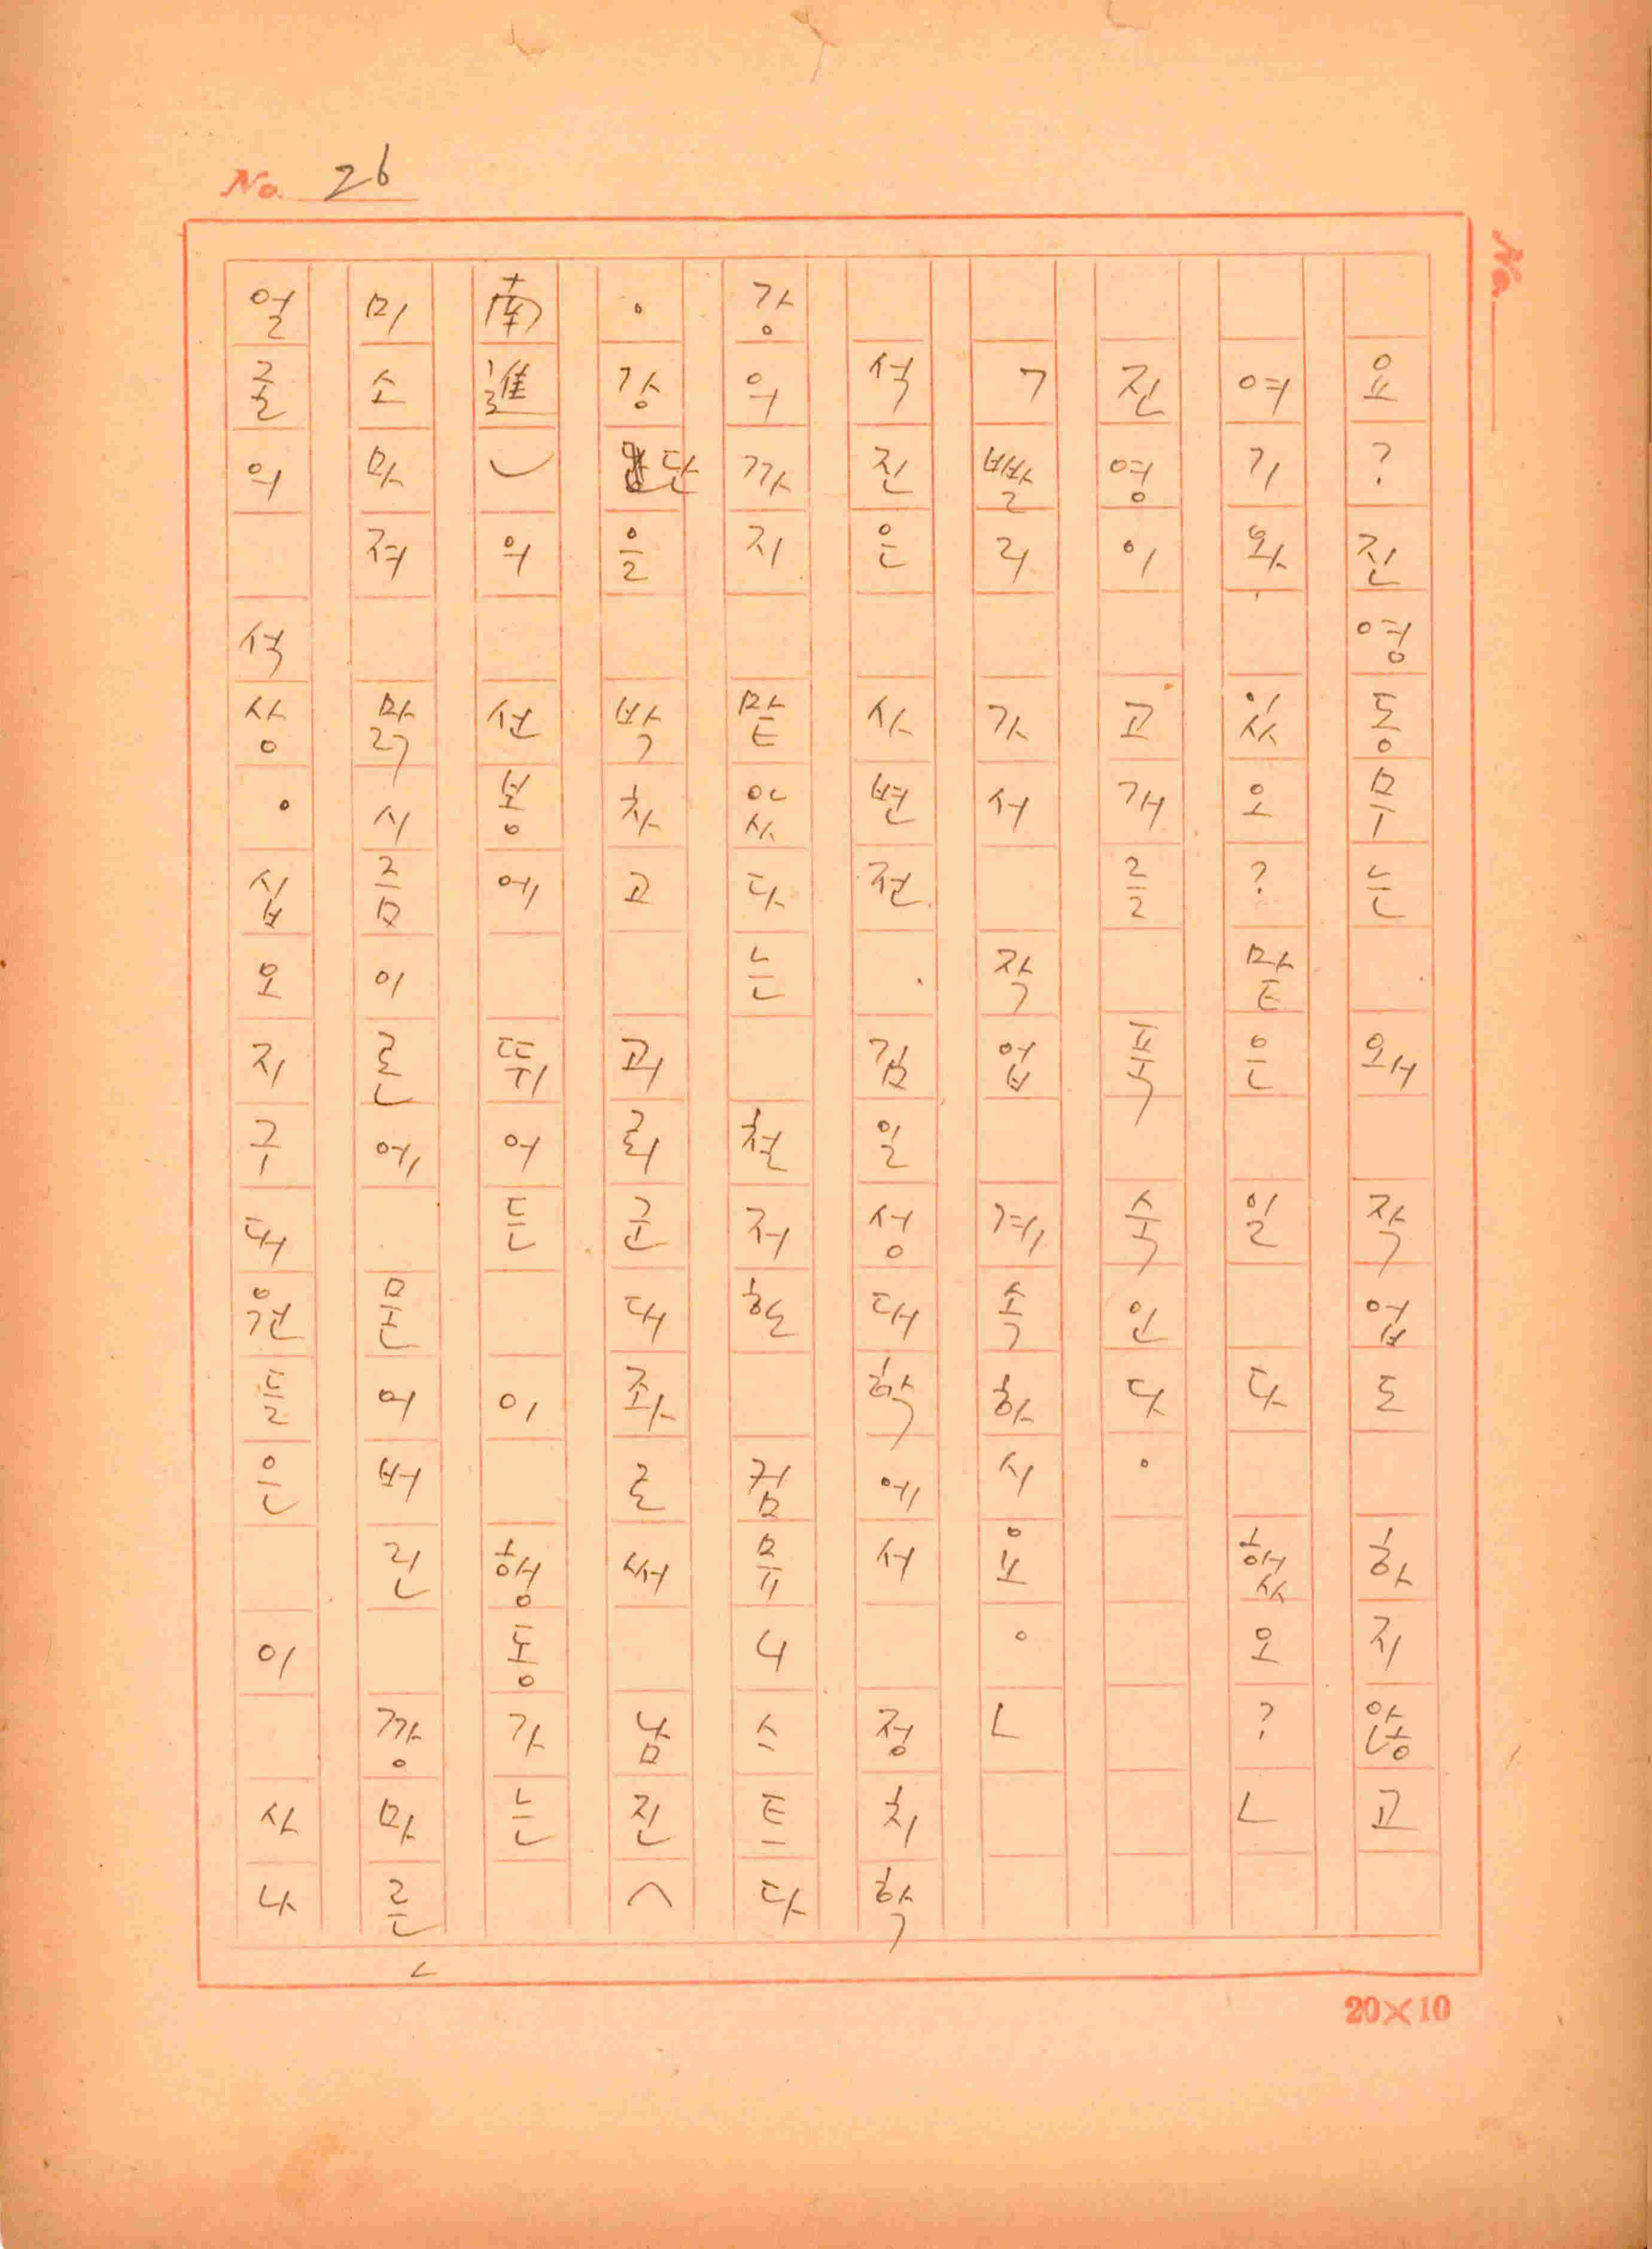 요? 진영동무는 왜 작업도 하지않고
여기와 있오? 맡은 일 다 했오?」
진영이 고개를 푹 숙인다。
「빨리 가서 작업 계속하시요。」
석진은 사변전. 김일성대학에서 정치학
강의까지 맡았다는 철저한 컴뮤니스트다
。강단을 박차고 괴뢰군대좌로써 남진(
南進)의 선봉에 뛰어든 이 행동가는
미소마저 맑시즘이론에 묻어버린 깡마른
얼굴의 석상. 십오지구대원들은 이 사나
No. 26
No.
20×10